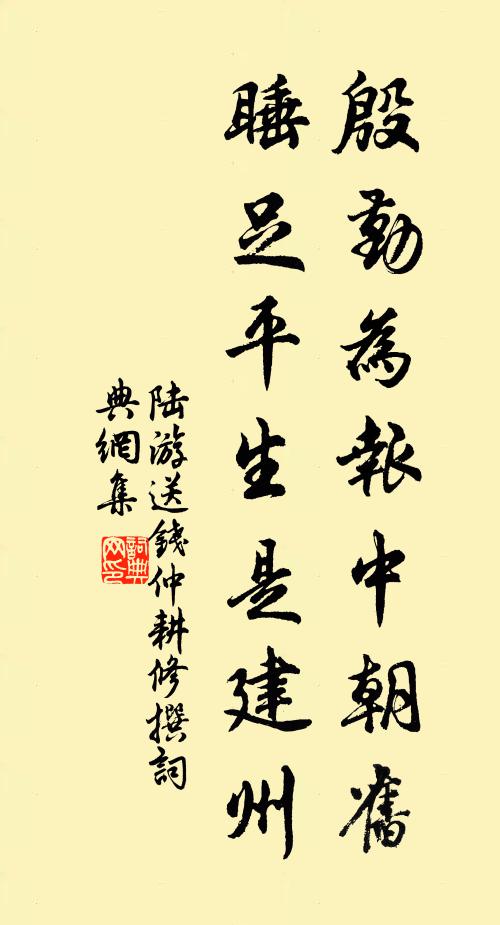 殷勤為報中朝舊
睡足平生是建州
陸游送錢仲耕修撰詞
典網集
詞典網印